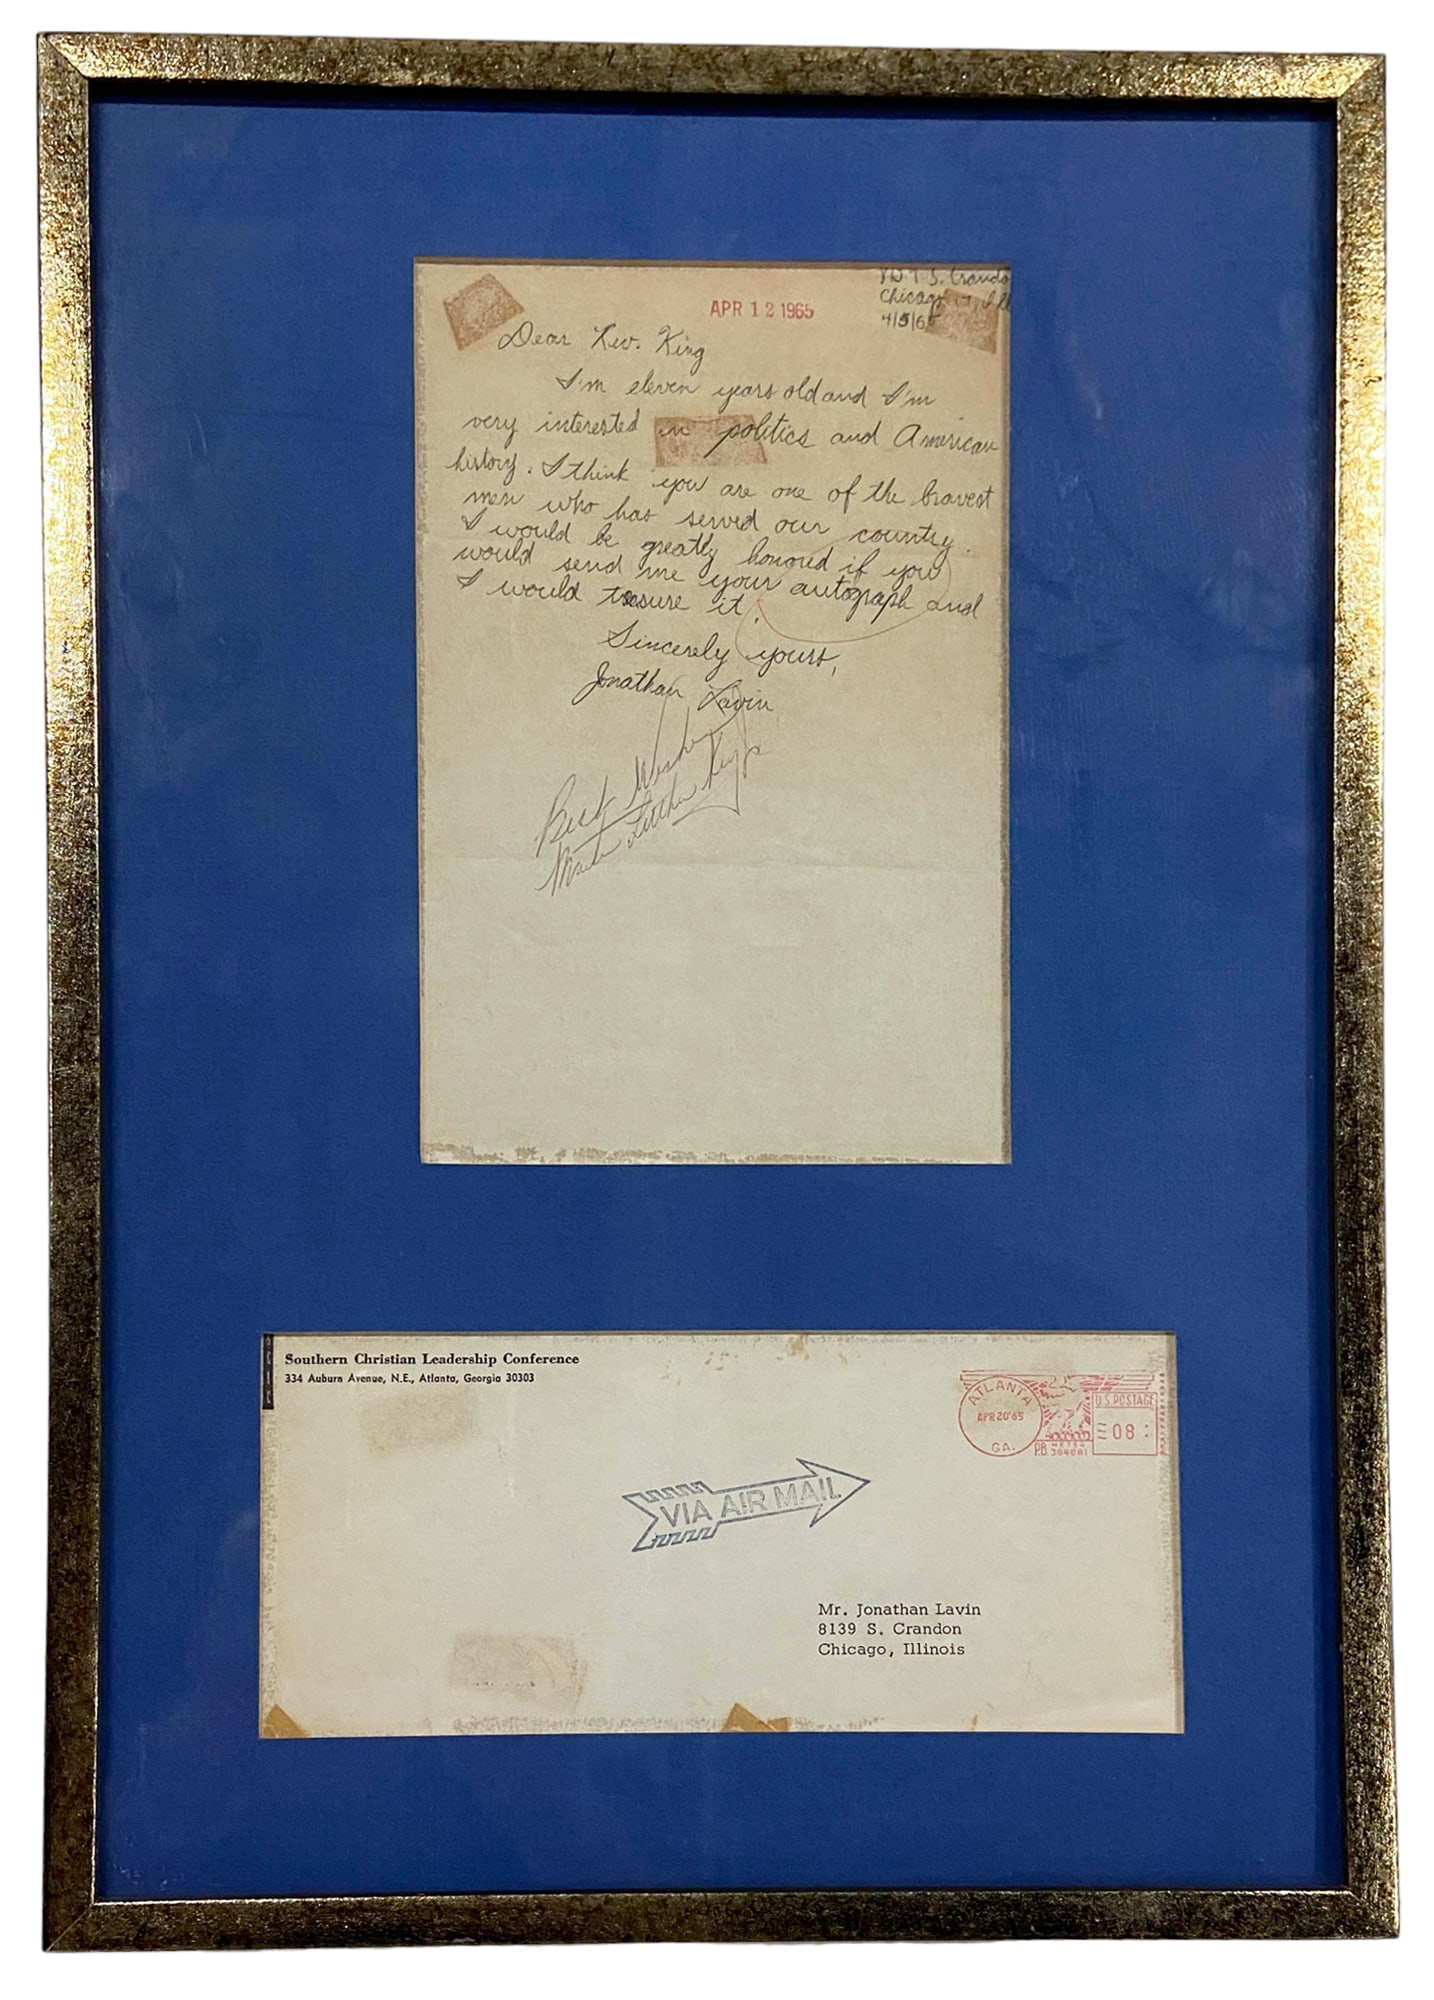 S. Crando
APR 12 1965
Chicago
4/5/65
Dear Rev. King
I'm eleven years old and I'm
very interested in politics and American
history. I think you are one of the bravest
men who has served our country.
I would be greatly honored if you
would send me your autograph and
I would tresure it.
Sincerely yours,
Jonathan Lavin
Best Wishes
Martin Luther King Jr
Southern Christian Leadership Conference
334 Auburn Avenue, N.E., Atlanta, Georgia 30303
ATLANTA
APR 20'65
GA.
P.B. METER
384681
U.S. POSTAGE
08
VIA AIR MAIL
Mr. Jonathan Lavin
8139 S. Crandon
Chicago, Illinois